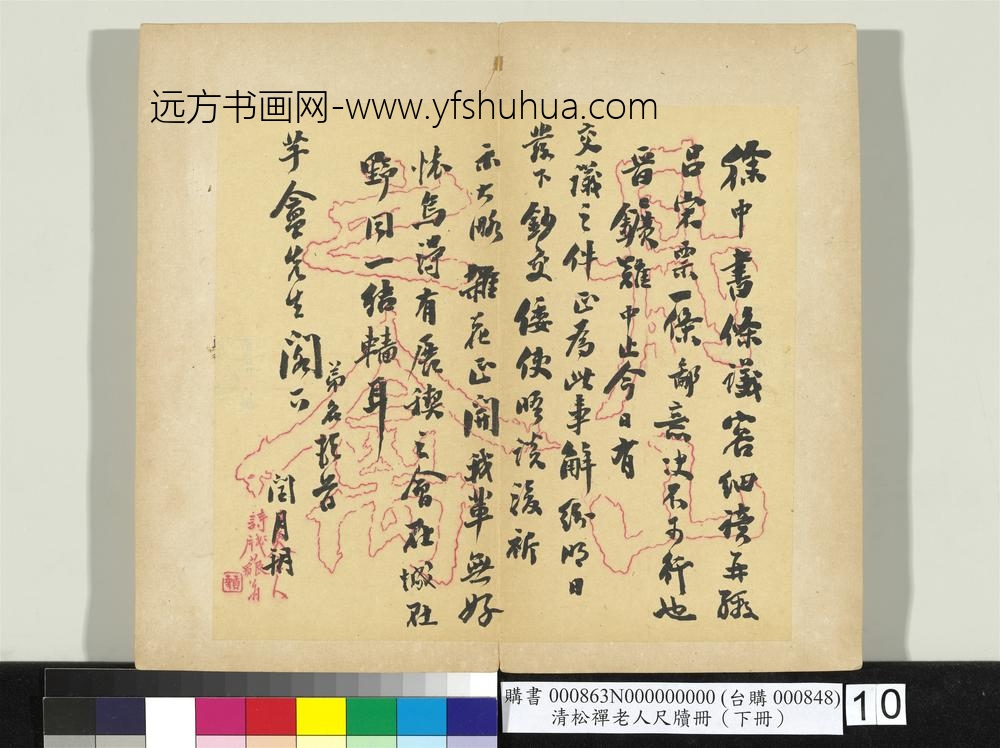 远方书画网-www.yfshuhua.com
徐中書條議容細讀再繳
呂宋票一條鄙意決不可行也
晋鑛難中止今日有
交議之件正為此事解紛明日
發下鈔交倭使晤談後祈
示大略雜花正開我輩無好
懷烏得有展禊之會在城在
野同一結轖耳
弟名頓首
芋盦先生閣下
閏月朔
購書 000863N000000000 (台購 000848)
清松禪老人尺牘冊（下冊）
10